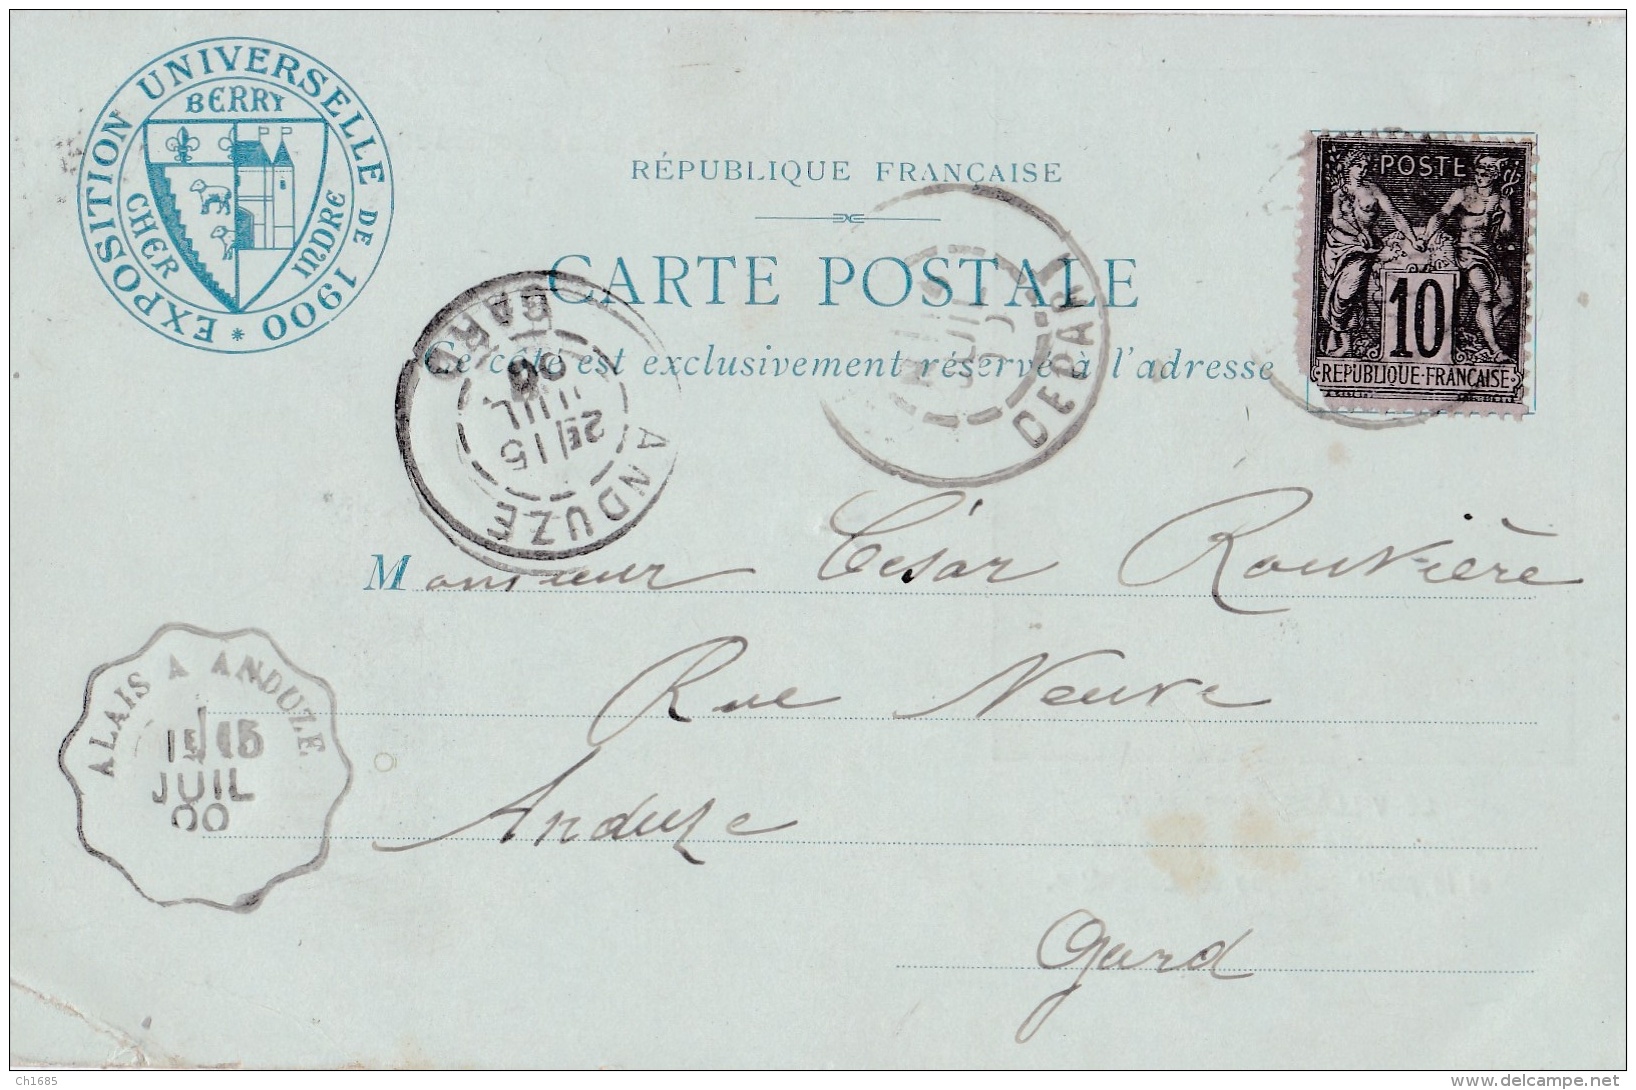 EXPOSITION UNIVERSELLE DE 1900 *
BERRY
CHER
INDRE
RÉPUBLIQUE FRANÇAISE
CARTE POSTALE
Ce côté est exclusivement réservé à l'adresse
POSTE
10
REPUBLIQUE·FRANÇAISE
DEPART
JUIL
ANDUZE
GARD
2E/15
JUIL
00
Monsieur César Rouvière
Rue Neuve
Anduze
Gard
ALAIS A ANDUZE
15
JUIL
00
Ch1685
delcampe.net